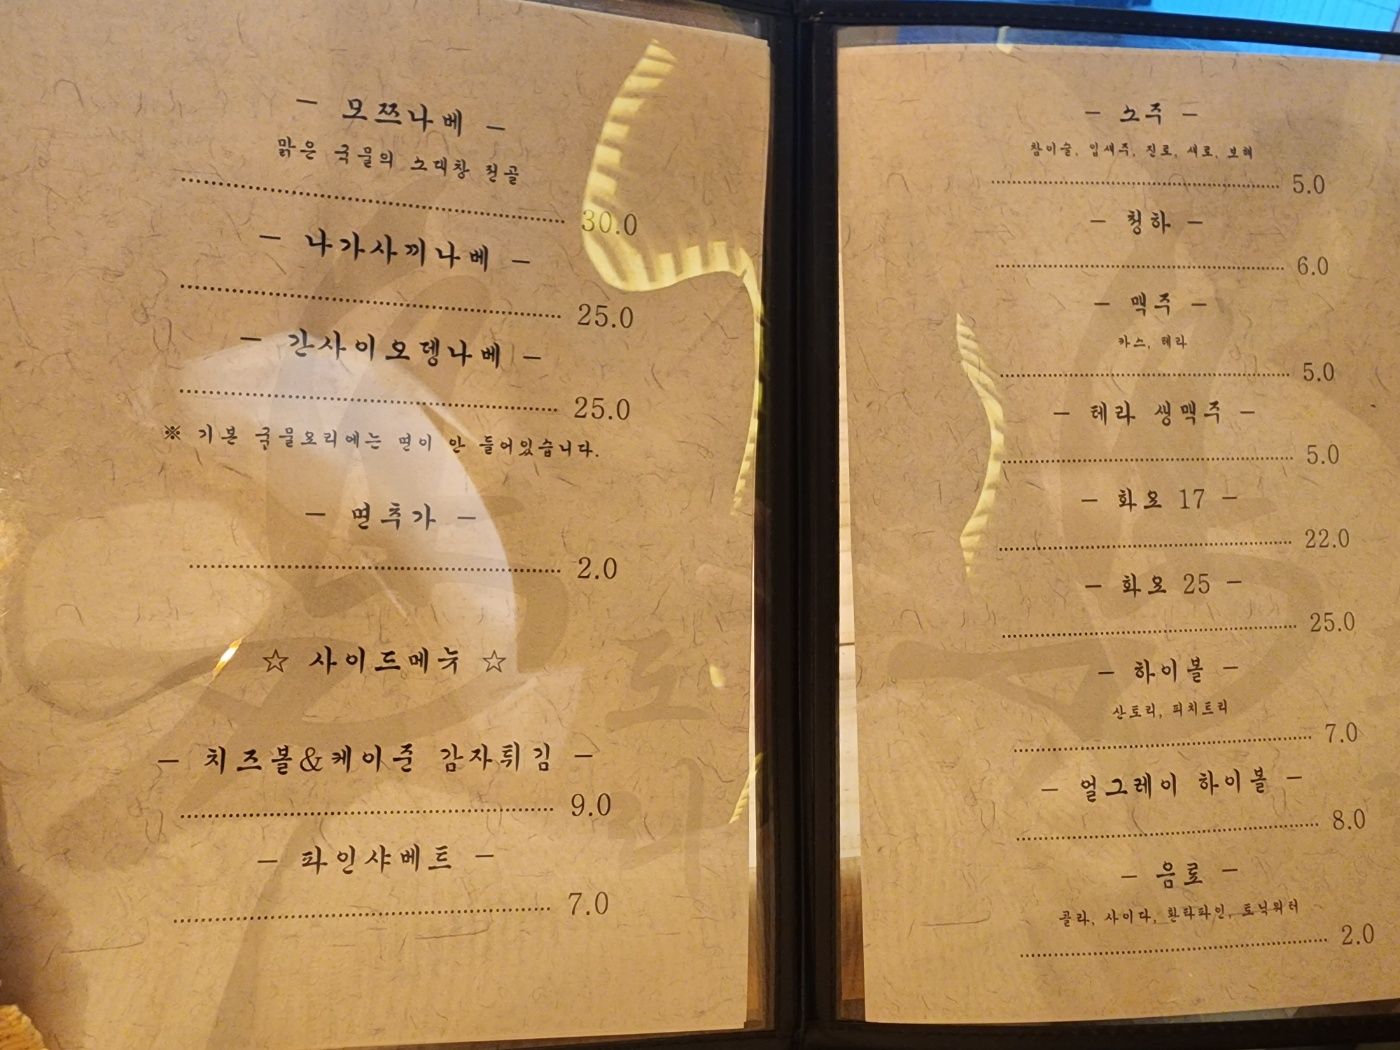 - 모쯔나베 -
맑은 국물의 소대창 전골
30.0
- 나가사끼나베 -
25.0
- 간사이오뎅나베 -
25.0
※ 기본 국물요리에는 면이 안 들어있습니다.
- 면추가 -
2.0
☆ 사이드메뉴 ☆
- 치즈볼&케이준 감자튀김 -
9.0
- 파인샤베트 -
7.0
- 소주 -
참이슬, 잎새주, 진로, 새로, 보해
5.0
- 청하 -
6.0
- 맥주 -
카스, 테라
5.0
- 테라 생맥주 -
5.0
- 화요 17 -
22.0
- 화요 25 -
25.0
- 하이볼 -
산토리, 피치트리
7.0
- 얼그레이 하이볼 -
8.0
- 음료 -
콜라, 사이다, 환타파인, 토닉워터
2.0